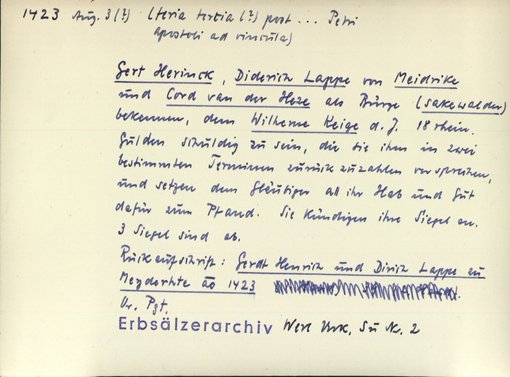 1423 Aug. 3 (?) (feria tertia (?) post ... Petri
apostoli ad vincula)
Gert Herinck, Diderich Lappe von Meidrike
und Cord van der Heze als Bürge (sakewalder)
bekennen, dem Wilheme Keige d. J. 18 rhein.
Gulden schuldig zu sein, die sie ihm in zwei
bestimmten Terminen zurückzuzahlen versprechen,
und setzen dem Gläubiger all ihr Hab und Gut
dafür zum Pfand. Sie kündigen ihre Siegel an.
3 Siegel sind ab.
Rückaufschrift: Gerdt Henrich und Dirich Lappe zu
Meyderke ao 1423
Or. Pgt.
Erbsälzerarchiv Werl Urk. Nr. 2